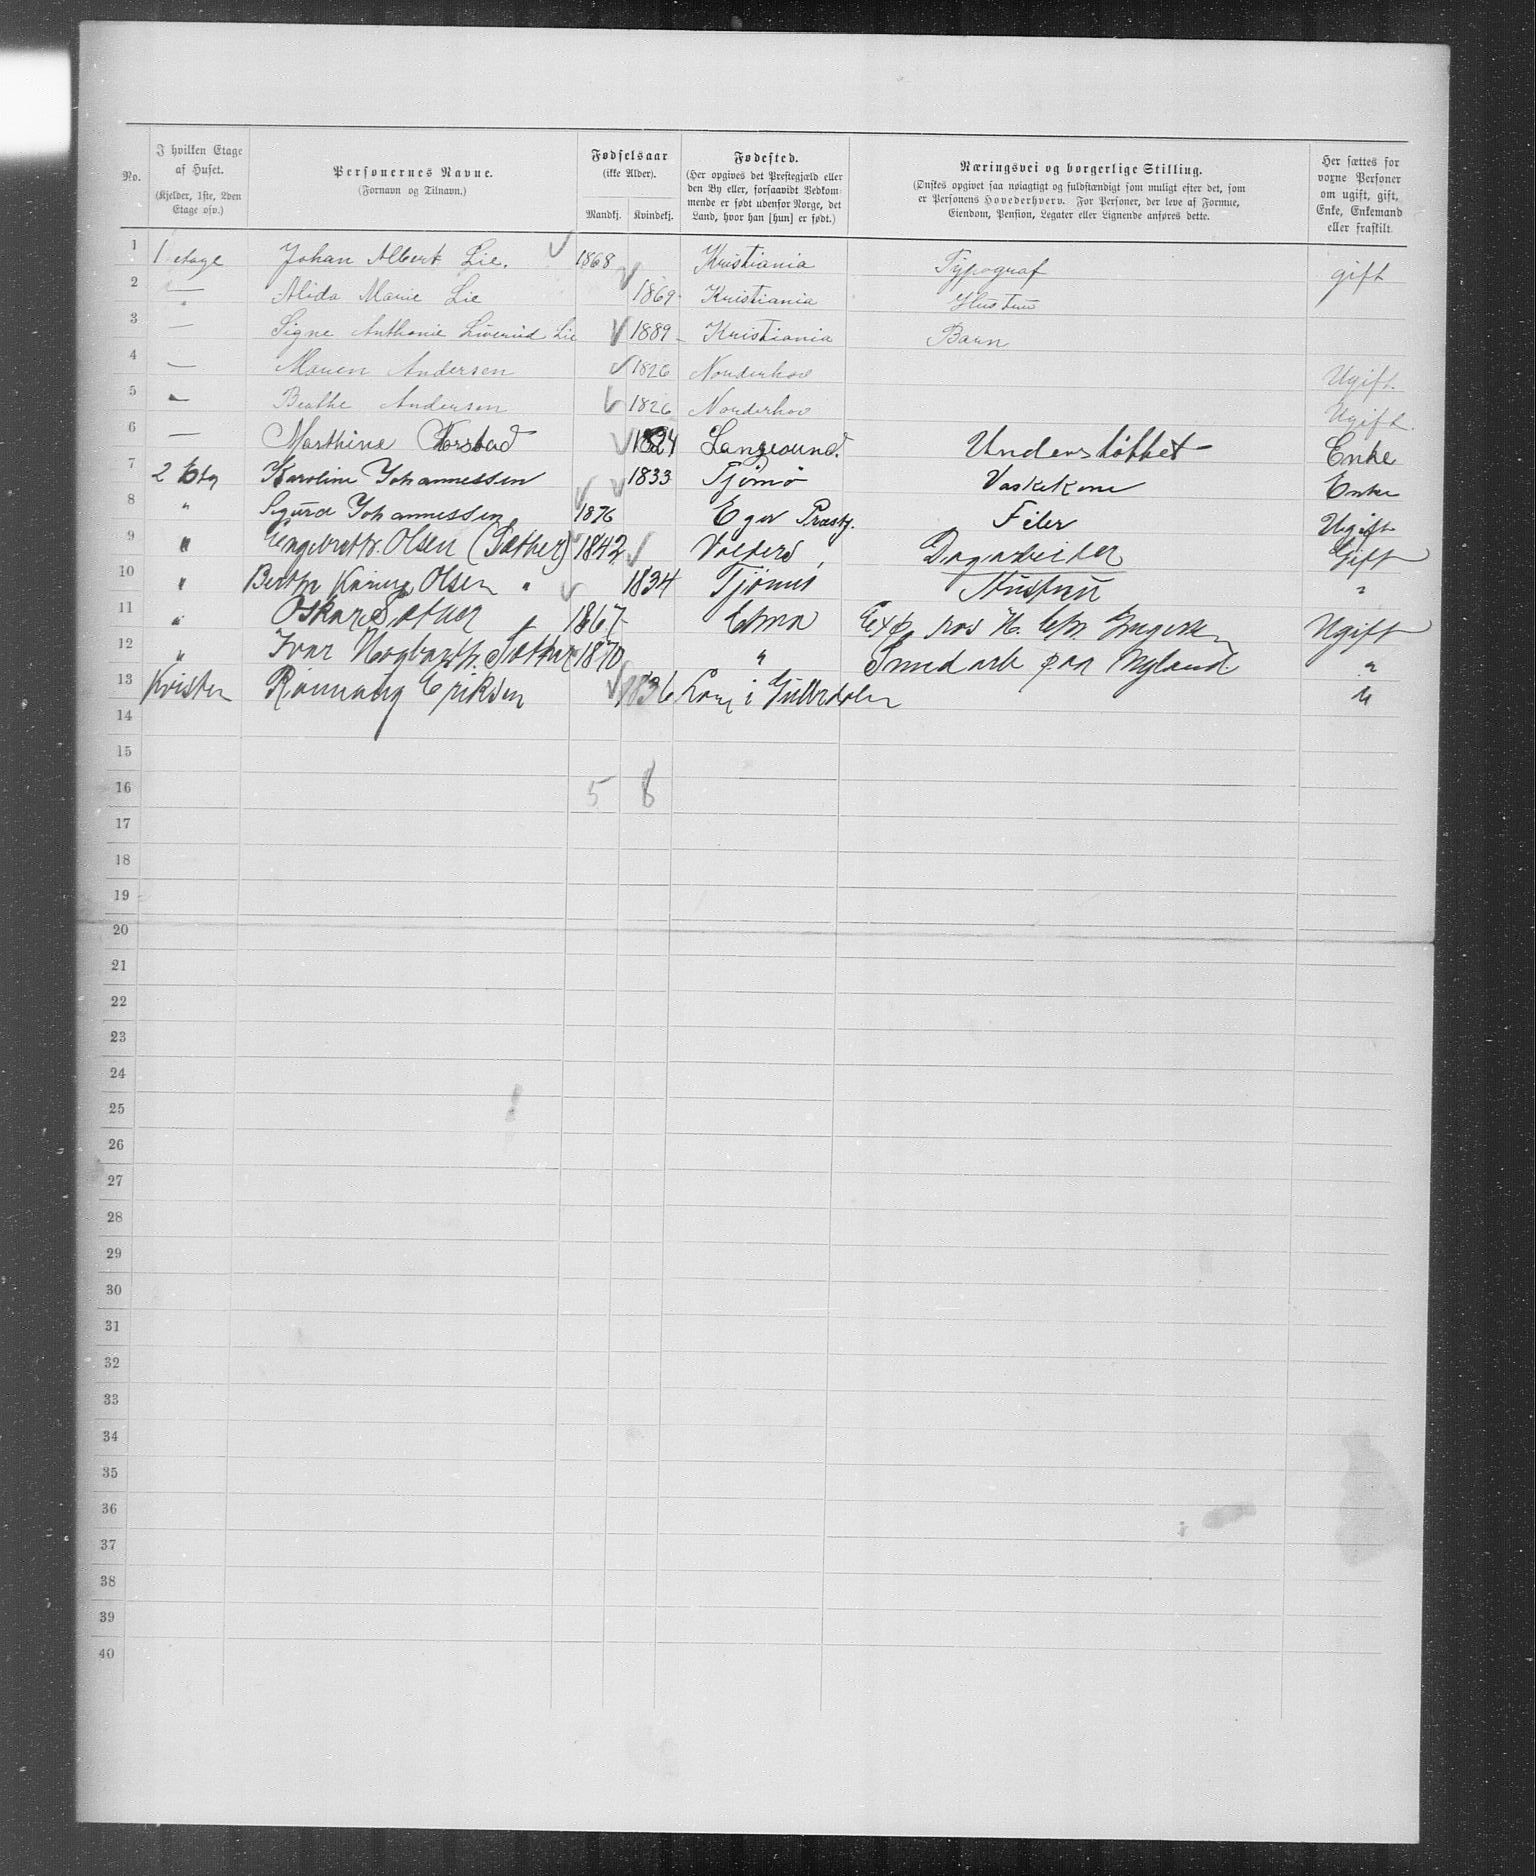 No.
I hvilken Etage af Huset.
(Kjelder, 1ste, 2den Etage osv.)
Personernes Navne.
(Fornavn og Tilnavn.)
Fødselsaar
(ikke Alder).
Mandkj. Kvindekj.
Fødested.
(Her opgives det Prestegjæld eller den By eller, forsaavidt Vedkommende er født udenfor Norge, det Land, hvor han [hun] er født.)
Næringsvei og borgerlige Stilling.
(Ønskes opgivet saa nøiagtigt og fuldstændigt som muligt efter det, som er Personens Hovederhverv. For Personer, der leve af Formue, Eiendom, Pension, Legater eller Lignende anføres dette.
Her sættes for voxne Personer om ugift, gift, Enke, Enkemand eller fraskilt.
1 1 etage Johan Albert Lie. 1868 Kristiania Typograf gift
2 — " Alida Marie Lie 1869 Kristiania Hustru
3 — Signe Anthonie Liverud Lie 1889 Kristiania Barn
4 — Maren Andersen 1826 Norderhov Ugift
5 — Beathe Andersen 1826 Norderhov Ugift.
6 — Marthine 1824 Langesund. Understøttet Enke
7 2 Etg Karoline Johannessen 1833 Tjömö Vaskekone Enke
8 " Sigurd Johannessen 1876 Eger Præstg. Filer Ugift
9 " Engebreth. Olsen (Sæther) 1842 Valders Dagarbeider Gift
10 " Berthe Karine Olsen " 1834 Tjömö Hustru "
11 " Oskar Sæther " 1867 Chra Exp. hos H. Chr. Ugift
12 " Ivar Hagbarth. Sæther 1870 " Smedarb paa Nyland. "
13 Kvisten Rønnaug Eriksen 1836 Lom i Gulbrdalen "
14
15
16 5 8
17
18
19
20
21
22
23
24
25
26
27
28
29
30
31
32
33
34
35
36
37
38
39
40